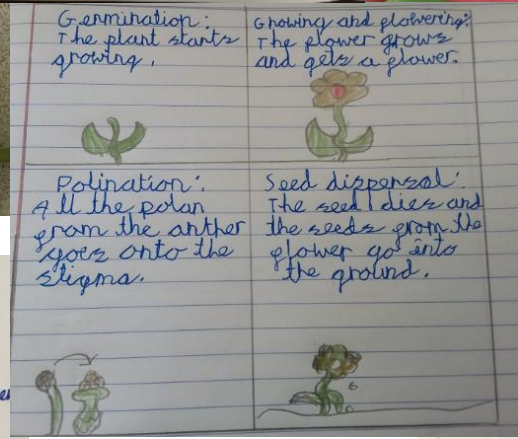 Germination:
The plant starts
growing.
Growing and flowering:
The flower grows
and gets a flower.
Polination:
All the polan
from the anther
goes onto the
stigma.
Seed dispersal:
The seed dies and
the seeds from the
flower go into
the ground.